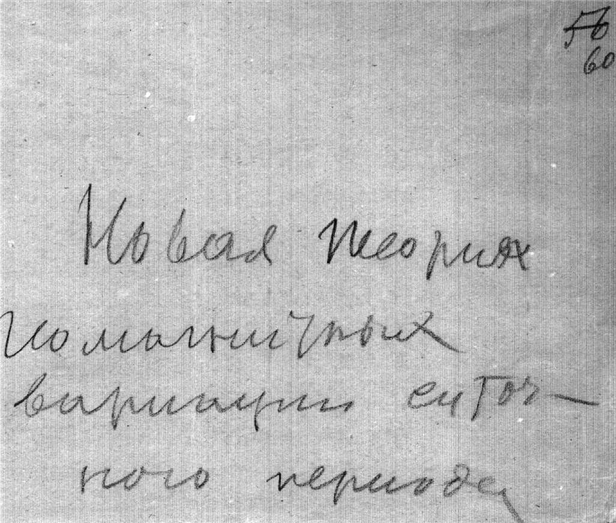 56
60
Новая теория
геомагнитных
вариации суточ-
ного периода